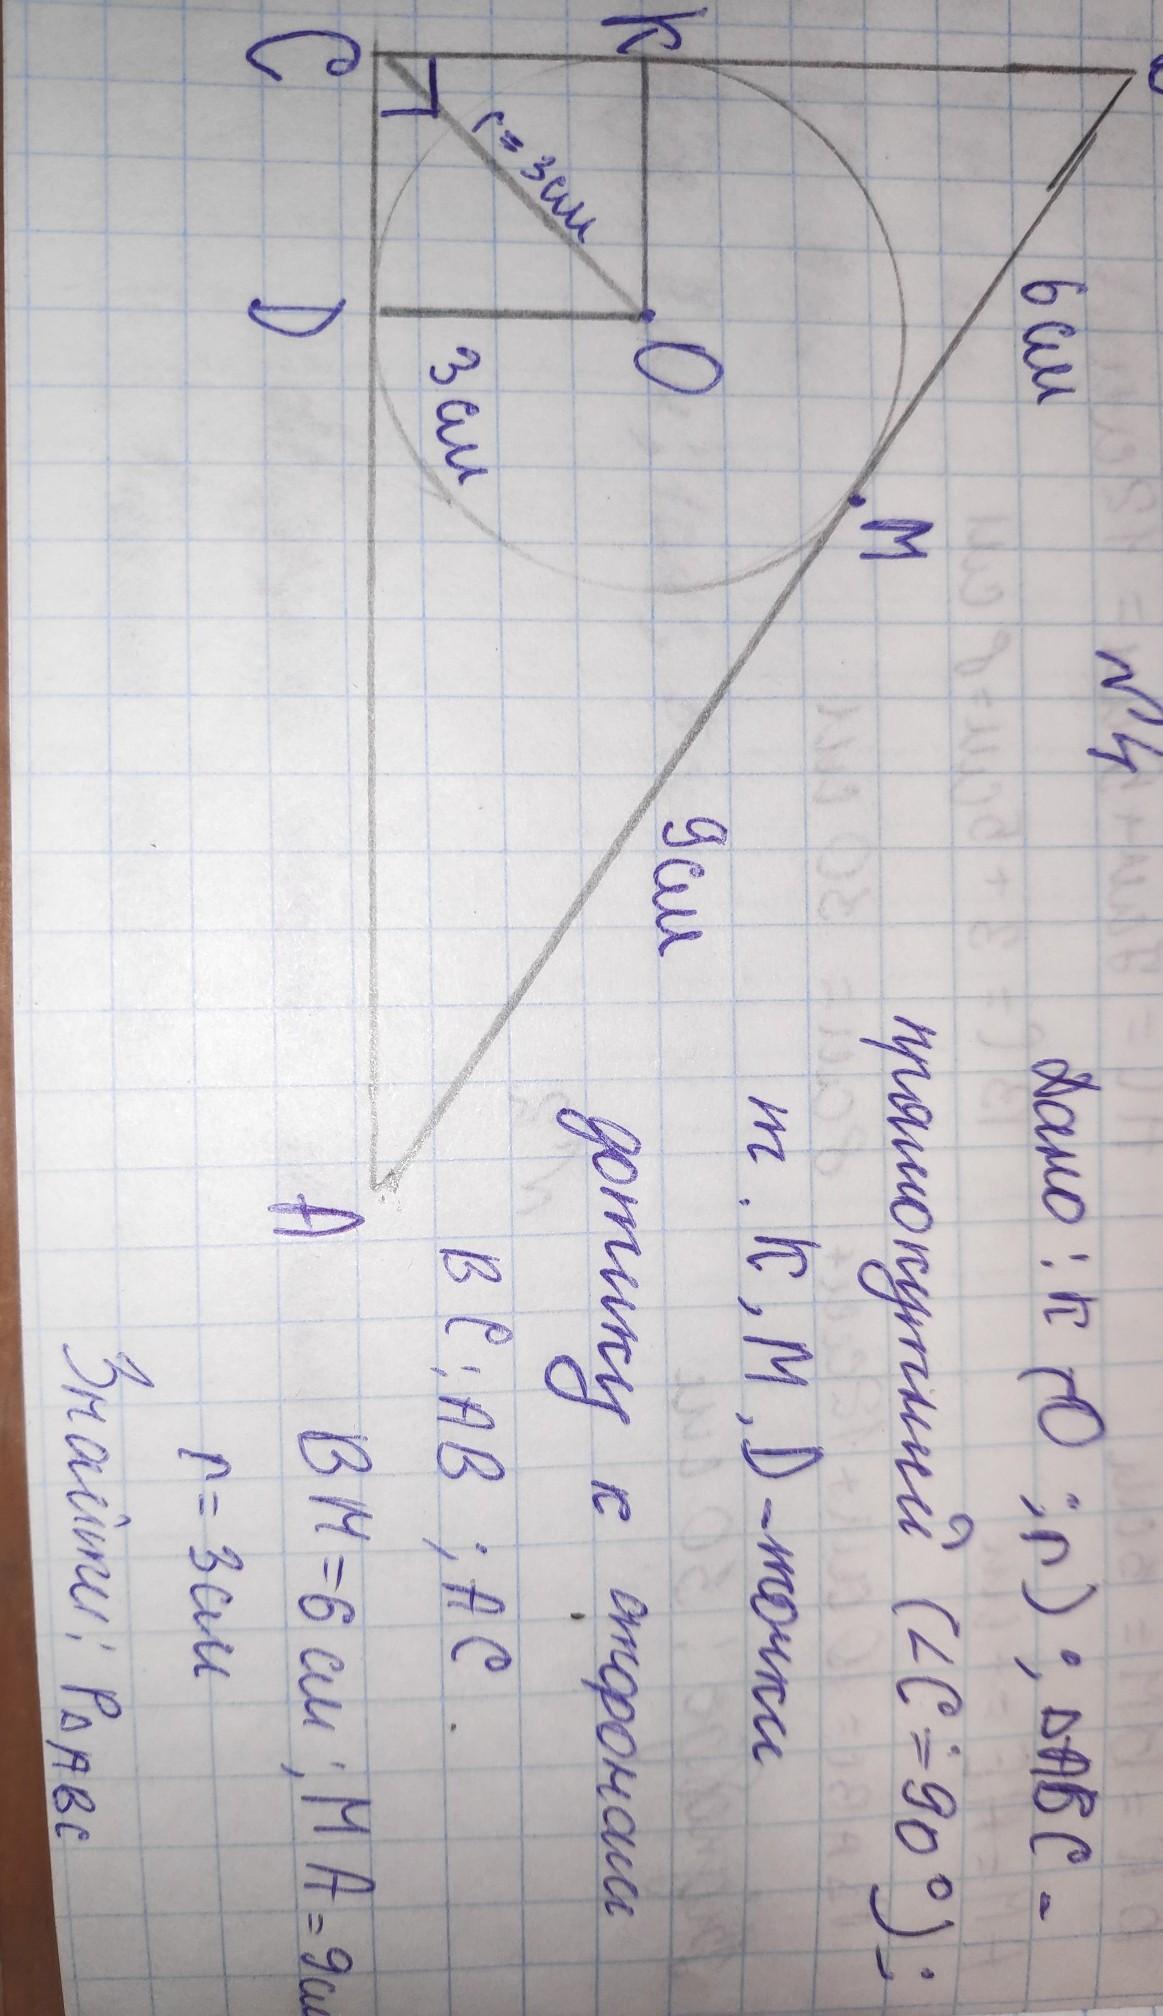 №4
Дано: к (О; r); ΔABC -
прямокутний (∠C=90°);
т. K, M, D - точки
дотику к сторонами
BC; AB; AC.
BM=6 см; MA=9см
r=3см
Знайти: PΔABC
6 см
M
9см
K
O
r=3см
3 см
C
D
A